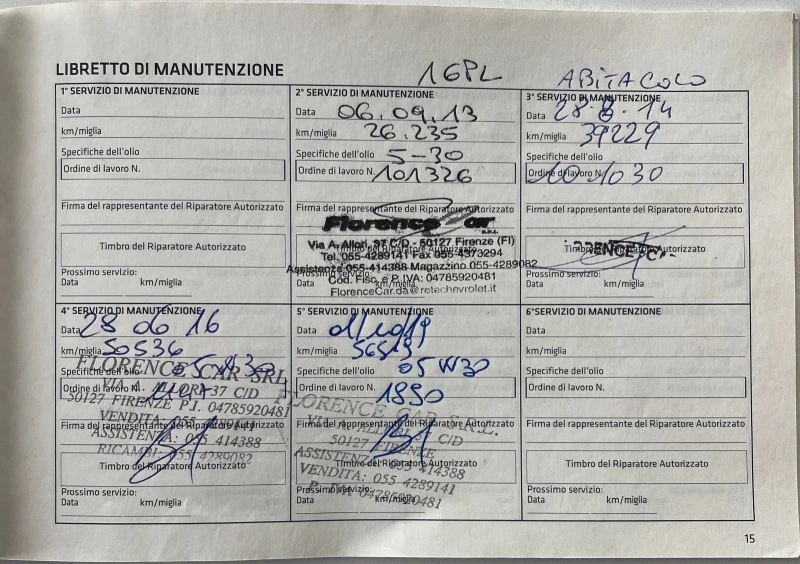 LIBRETTO DI MANUTENZIONE
1GPL
ABITACOLO
1° SERVIZIO DI MANUTENZIONE
Data
km/miglia
Specifiche dell'olio
Ordine di lavoro N.
Firma del rappresentante del Riparatore Autorizzato
Timbro del Riparatore Autorizzato
Prossimo servizio:
Data km/miglia
2° SERVIZIO DI MANUTENZIONE
Data 06.09.13
km/miglia 26.235
Specifiche dell'olio 5-30
Ordine di lavoro N. 101326
Firma del rappresentante del Riparatore Autorizzato
Florence Car S.R.L.
Via A. Allori, 37 C/D - 50127 Firenze (FI)
Timbro del Riparatore Autorizzato
Tel. 055-4289141 Fax 055-4373294
Assistenza 055-414388 Magazzino 055-4289082
Prossimo servizio:
Cod. Fisc. e P. IVA: 04785920481
Data km/miglia
FlorenceCar.da@retechevrolet.it
3° SERVIZIO DI MANUTENZIONE
Data 28.8.14
km/miglia 39229
Specifiche dell'olio
Ordine di lavoro N. 101030
Firma del rappresentante del Riparatore Autorizzato
Timbro del Riparatore Autorizzato
Prossimo servizio:
Data km/miglia
4° SERVIZIO DI MANUTENZIONE
Data 28 06 16
km/miglia 50536
Specifiche dell'olio 05W30
FLORENCE CAR SRL
Ordine di lavoro N.
VIA A. ALLORI 37 C/D
50127 FIRENZE P.I. 04785920481
Firma del rappresentante del Riparatore Autorizzato
VENDITA: 055 4289141
ASSISTENZA: 055 414388
RICAMBI: 055 4289082
Timbro del Riparatore Autorizzato
Prossimo servizio:
Data km/miglia
5° SERVIZIO DI MANUTENZIONE
Data
km/miglia 56513
Specifiche dell'olio 05W30
Ordine di lavoro N. 1890
FLORENCE CAR S.R.L.
Firma del rappresentante del Riparatore Autorizzato
VIA A. ALLORI C/D
50127 FIRENZE
ASSISTENZA 055 414388
Timbro del Riparatore Autorizzato
VENDITA: 055 4289141
Prossimo servizio:
P. IVA 04785920481
Data km/miglia
6° SERVIZIO DI MANUTENZIONE
Data
km/miglia
Specifiche dell'olio
Ordine di lavoro N.
Firma del rappresentante del Riparatore Autorizzato
Timbro del Riparatore Autorizzato
Prossimo servizio:
Data km/miglia
15